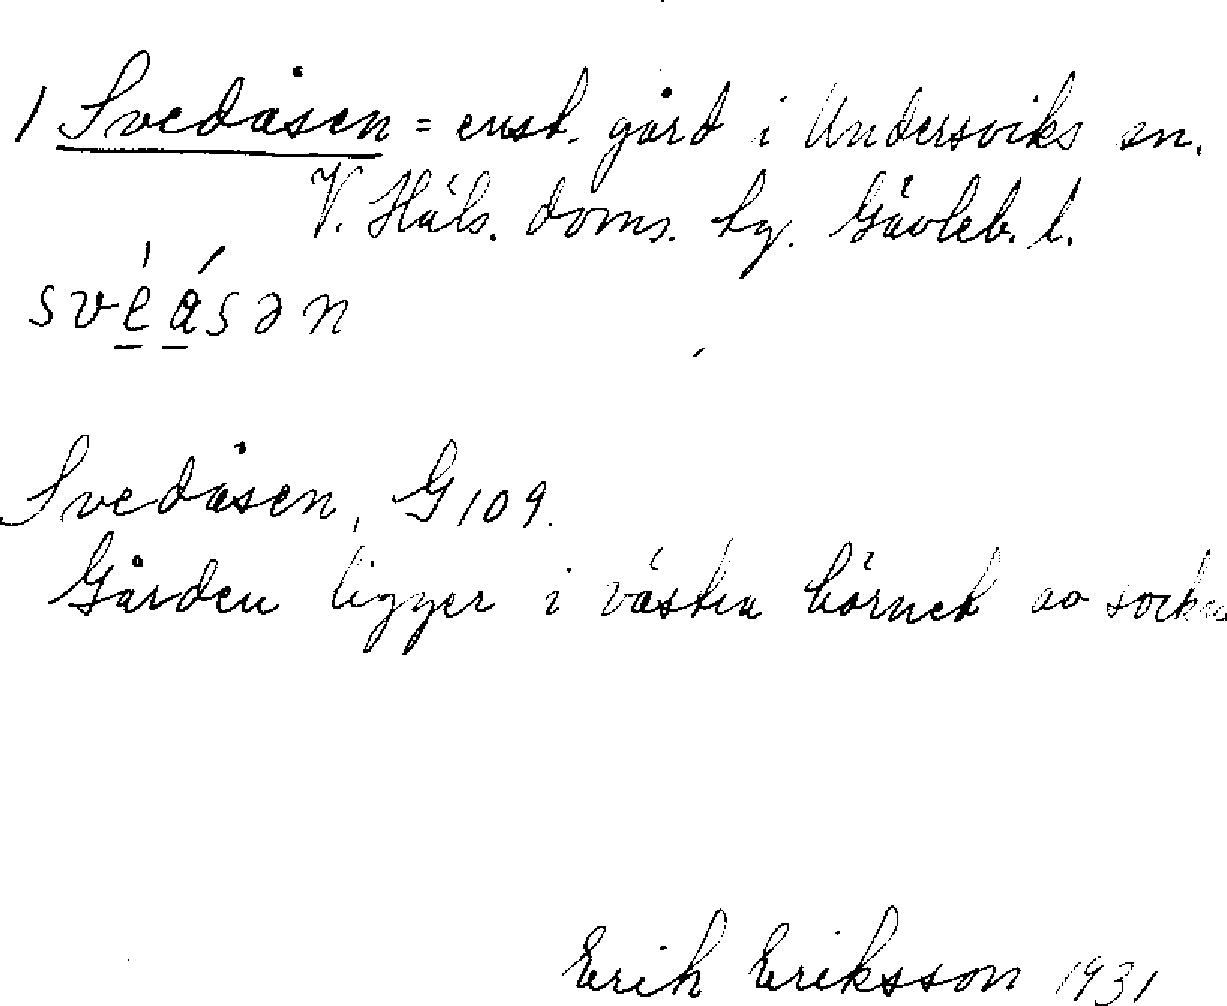 1 Svedåsen = enst. gård i Undersviks sn.
V. Häls. doms. hg. Gävleb. l.
svèásən
Svedåsen, G 109.
Gården ligger i västra hörnet av sockn
Erik Eriksson 1931